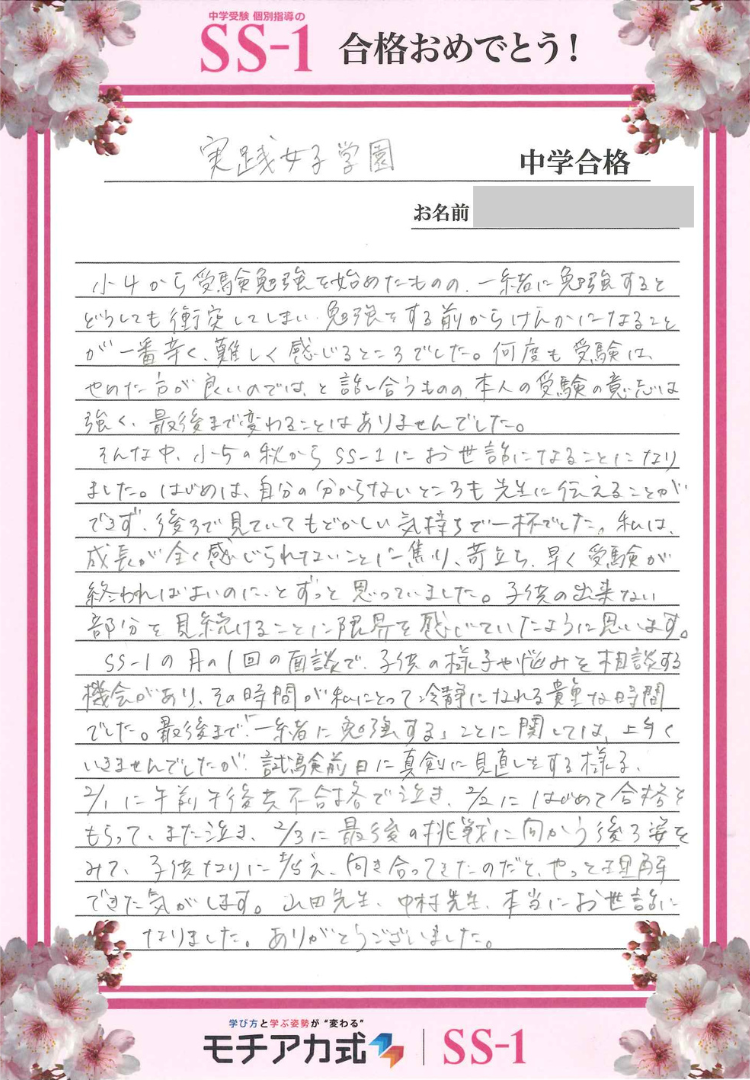 中学受験 個別指導の
SS-1 合格おめでとう!
実践女子学園 中学合格
お名前
小4から受験勉強を始めたものの、一緒に勉強すると
どうしても衝突してしまい、勉強をする前からけんかになること
が一番辛く、難しく感じるところでした。何度も受験は、
やめた方が良いのでは、と話し合うものの、本人の受験の意志は
強く、最後まで変わることはありませんでした。
そんな中、小5の秋からSS-1にお世話になることになり
ました。はじめは、自分の分からないところも先生に伝えることが
できず、後ろで見ていてもどかしい気持ちで一杯でした。私は、
成長が全く感じられないことに焦り、苛立ち、早く受験が
終わればよいのに、とずっと思っていました。子供の出来ない
部分を見続けることに限界を感じていたように思います。
SS-1の月の1回の面談で、子供の様子や悩みを相談する
機会があり、その時間が私にとって冷静になれる貴重な時間
でした。最後まで「一緒に勉強する」ことに関しては、上手く
いきませんでしたが、試験前日に真剣に見直しをする様子、
2/1に午前午後共不合格で泣き、2/2にはじめて合格を
もらって、また泣き、2/3に最後の挑戦に向かう後ろ姿を
みて、子供なりに考え、向き合ってきたのだと、やっと理解
できた気がします。山田先生、中村先生、本当にお世話に
なりました。ありがとうございました。
学び方と学ぶ姿勢が"変わる"
モチアカ式 SS-1